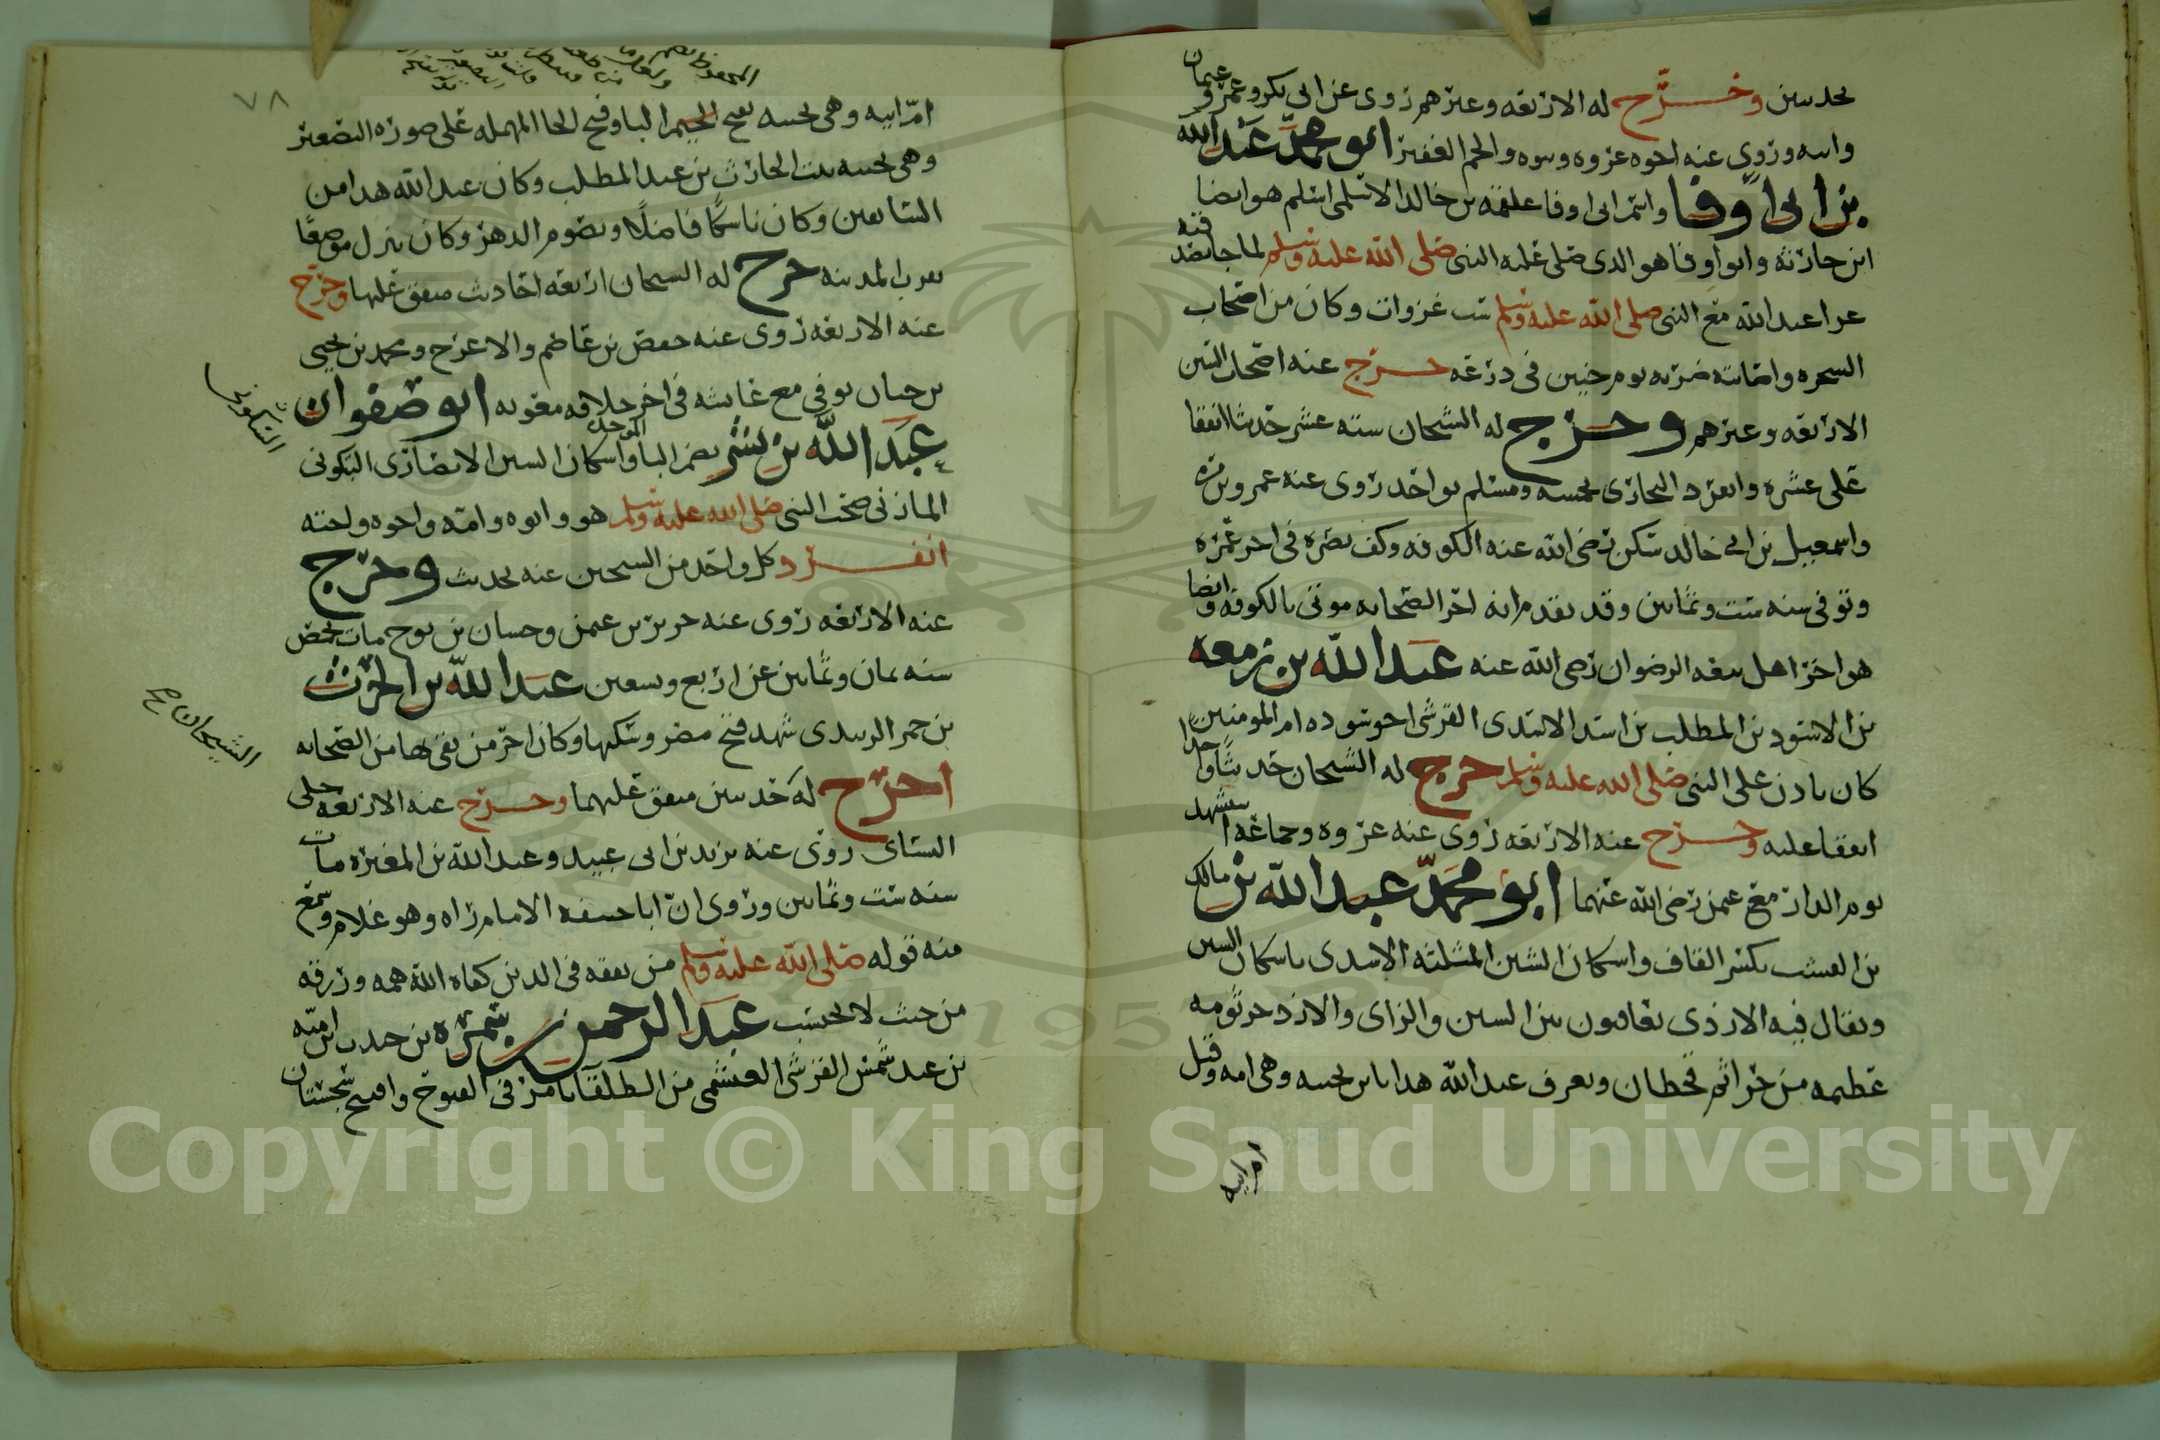 بحديثين وخرّج له الاربعه وغيرهم روى عن ابى بكر وعمر وعثمان
وابيه وروى عنه اخوه عروه وبنوه والجم الغفير ابو محمد عبد الله
بن ابى اوفا واسم ابى اوفا علقمه بن خالد الاسلمى اسلم هو ايضا
ابن حارثه وابو اوفا هو الذى صلى عليه النبى صلى الله عليه وسلم لما جا بصدقته
غزا عبد الله مع النبى صلى الله عليه وسلم ست غزوات وكان من اصحاب
الشجره واصابته ضربه يوم حنين فى ذرعه خرج عنه اصحاب السنن
الاربعه وغيرهم وخرج له الشيخان سته عشر حديثا اتفقا
على عشره وانفرد البخارى بخمسه ومسلم بواحد روى عنه عمرو بن مره
واسمعيل بن ابى خالد سكن رضى الله عنه الكوفه وكف بصره فى اخر عمره
وتوفى سنه ست وثمانين وقد تقدم انه اخر الصحابه موتى بالكوفه وايضا
هو اخر اهل بيعه الرضوان رضى الله عنه عبد الله بن زمعه
بن الاسود بن المطلب بن اسد الاسدى القرشى اخو سوده ام المومنين
كان ياذن على النبى صلى الله عليه وسلم خرج له الشيخان حديثا واحدا
اتفقا عليه وخرج عنه الاربعه روى عنه عروه وجماعه استشهد
يوم الدار مع عثمن رضى الله عنهما ابو محمد عبد الله بن مالك
بن القشب بكسر القاف واسكان الشين المثلثه الاسدى باسكان السين
ويقال فيه الازدى يعاقبون بين السين والزاى والازد جرثومه
عظيمه من جراثم قحطان ويعرف عبد الله هذا بابن بحينه وهى امه وقيل
ام ابيه
٧٨
ام ابيه وهى بحينه بضم الجيم البا وفتح الحا المهمله على صوره التصغير
وهى بحينه بنت الحارث بن عبد المطلب وكان عبد الله هذا من
السابقين وكان ناسكا فاضلا وبصوم الدهر وكان ينزل موضعا
بقرب المدينه خرج له الشيخان اربعه احاديث متفق عليها وخرج
عنه الاربعه روى عنه حفص بن عاصم والاعرج ومحمد بن يحيى
بن حبان توفى مع عائشه فى اخر خلافه معويه ابو صفوان
عبد الله بن بسر بضم البا الموحده واسكان السين الانصارى السكونى
السكونى
المازنى صحب النبى صلى الله عليه وسلم هو وابوه وامه واخوه واخته
انفرد كل واحد من الشيخين عنه بحديث وخرج
عنه الاربعه روى عنه حريز بن عثمن وحسان بن نوح مات بحمص
سنه ثمان وثمانين عن اربع وتسعين عبد الله بن الحرث
بن جمر الزبيدى شهد فتح مصر وسكنها وكان اخر من بقى بها من الصحابه
الشيخان صح
اخرج له حديثين متفق عليهما وخرج عنه الاربعه خلى
النساى روى عنه يزيد بن ابى عبيد وعبد الله بن المغيره مات
سنه ست وثمانين وروى ان ابا حنيفه الامام راه وهو غلام وسمع
منه قوله صلى الله عليه وسلم من تفقه فى الدين كفاه الله همه ورزقه
من حيث لا يحتسب عبد الرحمن بن سمره بن حبيب بن اميه
بن عبد شمس القرشى العبشمى من الطلقا تامر فى الفتوح وافتتح سجستان